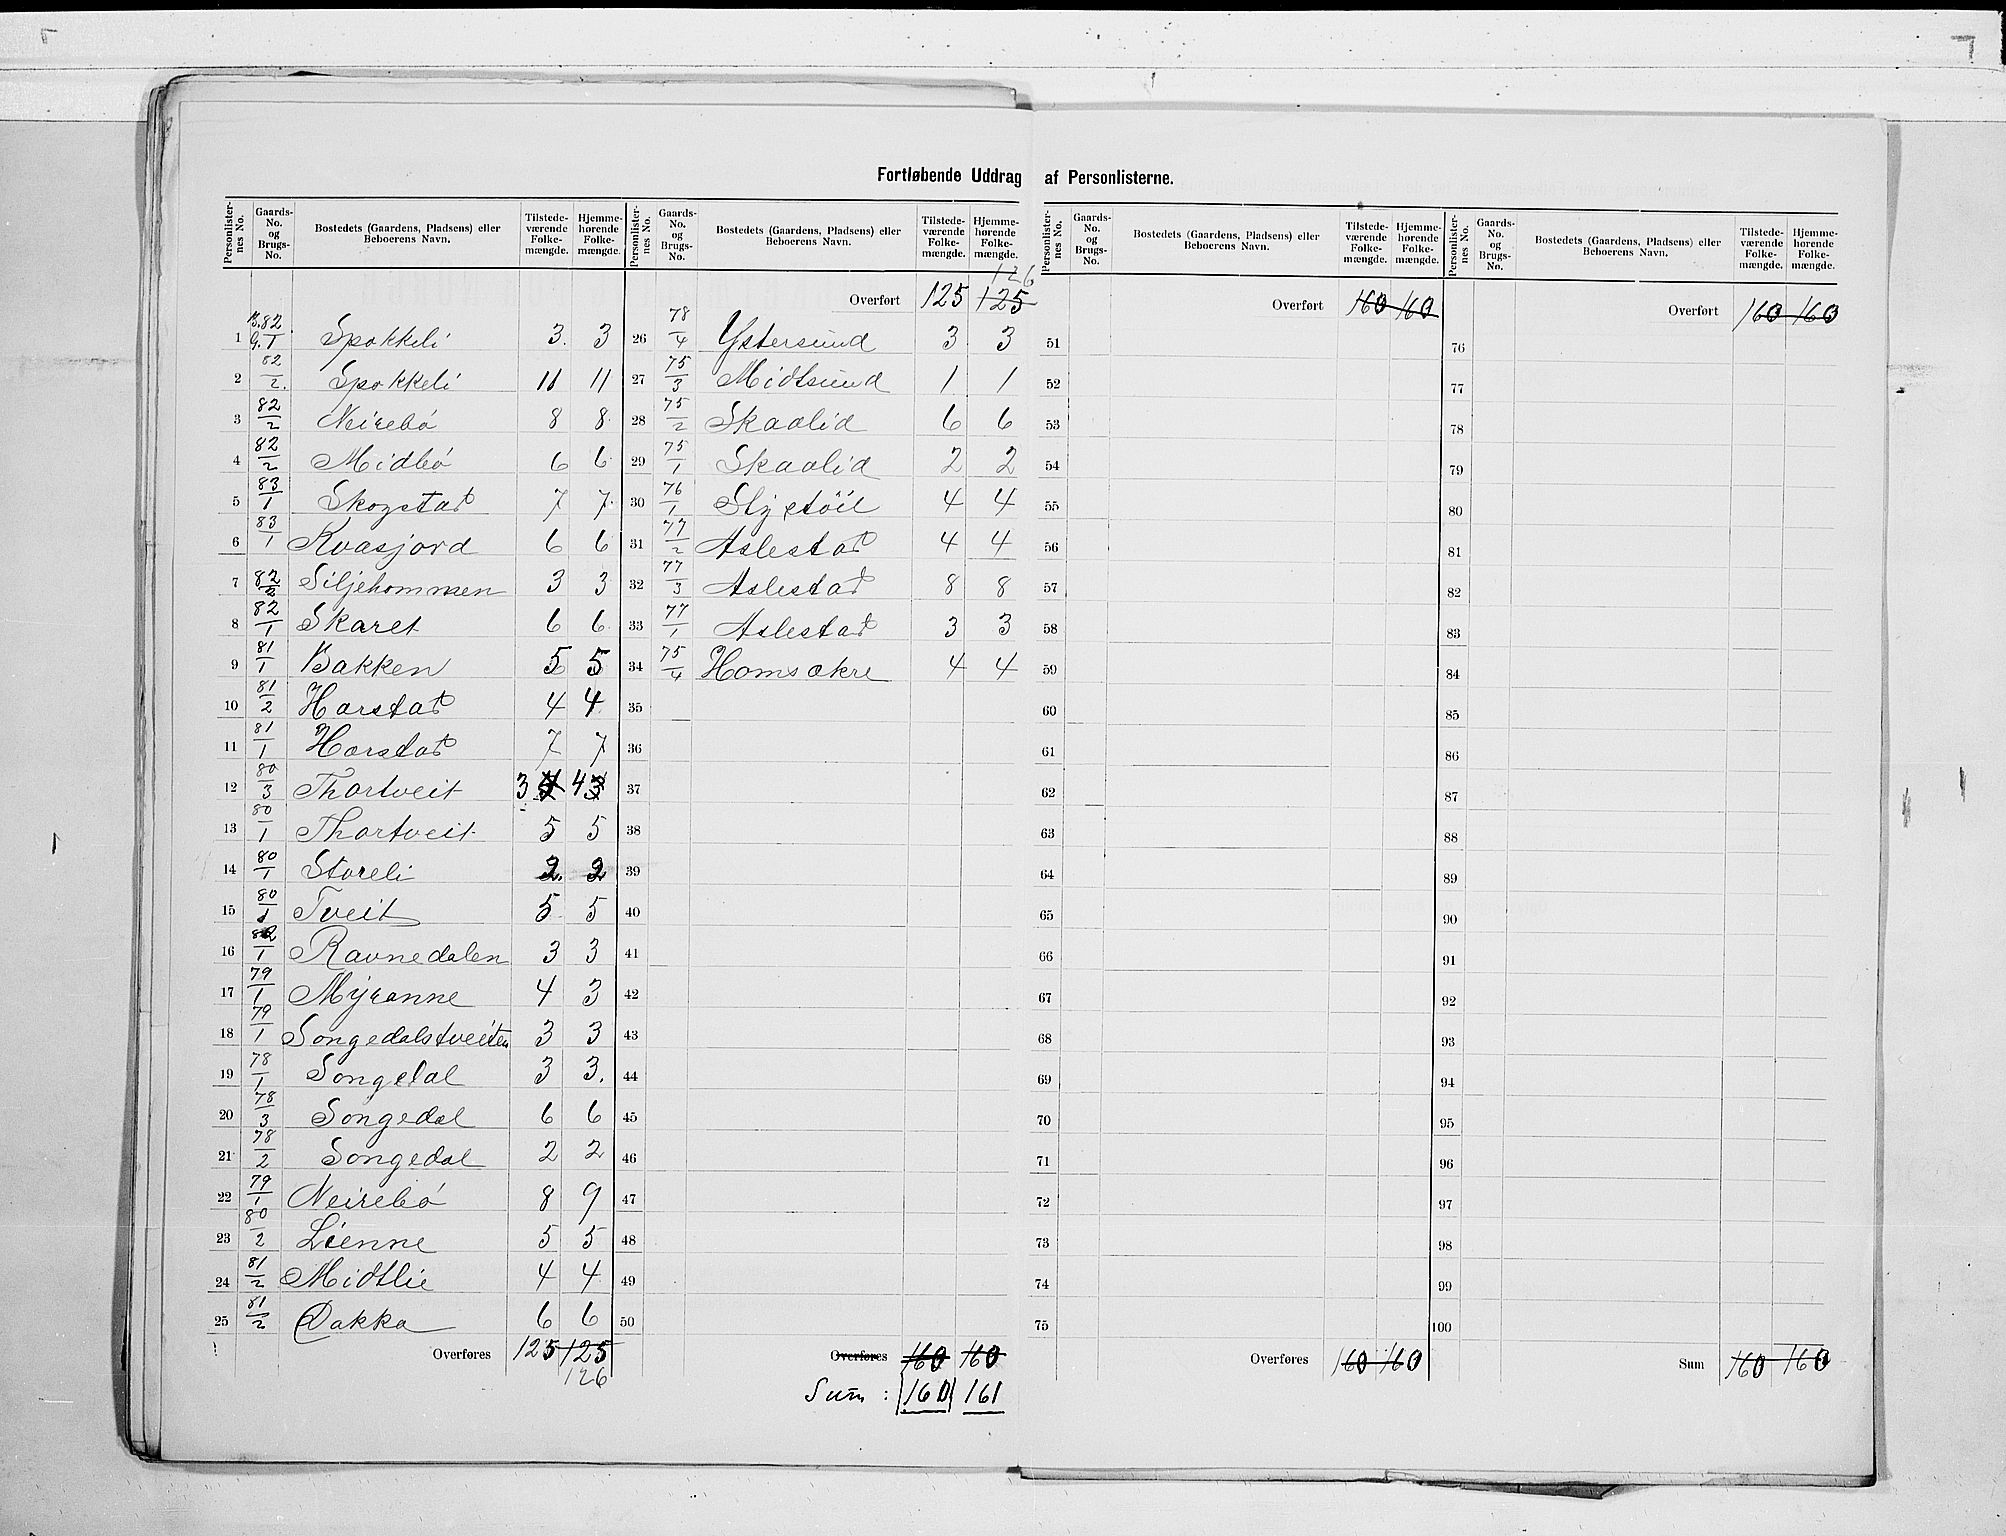 Fortløbende Uddrag af Personlisterne.
Personlisternes No. Gaards-No. og Brugs-No. Bostedets (Gaardens, Pladsens) eller Beboerens Navn. Tilstedeværende Folkemængde. Hjemmehørende Folkemængde.
1 B. 82 G. 1 Spokkeli 3. 3
2 82/2. Spokkeli 11 11
3 82/2 Neirebö 8 8
4 82/2 Midbö 6 6
5 83/1 Skogstad 7 7
6 83/1 Kvasjord 6 6
7 82/2 Siljehommen 3 3
8 82/1 Skaret 6 6
9 81/1 Bakken 5 5
10 81/2 Harstad 4 4
11 81/1 Harstad 7 7
12 80/3 Thortveit 3 4
13 80/1 Thortveit 5 5
14 80/1 Storeli 2. 2
15 80/1 Tveit 5 5
16 82/1 Ravnedalen 3 3
17 79/1 Myranne 4 3
18 79/1 Songedalstveiten 3 3
19 78/1 Songedal 3 3.
20 78/3 Songedal 6 6
21 78/2 Songedal 2 2
22 79/1 Neirebö 8 9
23 80/2 Lienne 5 5
24 81/2 Midtlie 4 4
25 81/2 Dakka 6 6
Overføres 125 125
126
Personlisternes No. Gaards-No. og Brugs-No. Bostedets (Gaardens, Pladsens) eller Beboerens Navn. Tilstedeværende Folkemængde. Hjemmehørende Folkemængde.
126
Overført 125 125
26 78/4 Ystersund 3 3
27 75/3 Midtsund 1 1
28 75/2 Skaalid 6 6
29 75/1 Skaalid 2 2
30 76/1 Stystöil 4 4
31 77/2 Aslestad 4 4
32 77/3 Aslestad 8 8
33 77/1 Aslestad 3 3
34 75/4 Homsakre 4 4
35
36
37
38
39
40
41
42
43
44
45
46
47
48
49
50
Overføres 160 160
Sum : 160 161
Personlisternes No. Gaards-No. og Brugs-No. Bostedets (Gaardens, Pladsens) eller Beboerens Navn. Tilstedeværende Folkemængde. Hjemmehørende Folkemængde.
Overført 160 160
51
52
53
54
55
56
57
58
59
60
61
62
63
64
65
66
67
68
69
70
71
72
73
74
75
Overføres 160 160
Personlisternes No. Gaards-No. og Brugs-No. Bostedets (Gaardens, Pladsens) eller Beboerens Navn. Tilstedeværende Folkemængde. Hjemmehørende Folkemængde.
Overført 160 160
76
77
78
79
80
81
82
83
84
85
86
87
88
89
90
91
92
93
94
95
96
97
98
99
100
Sum 160 160